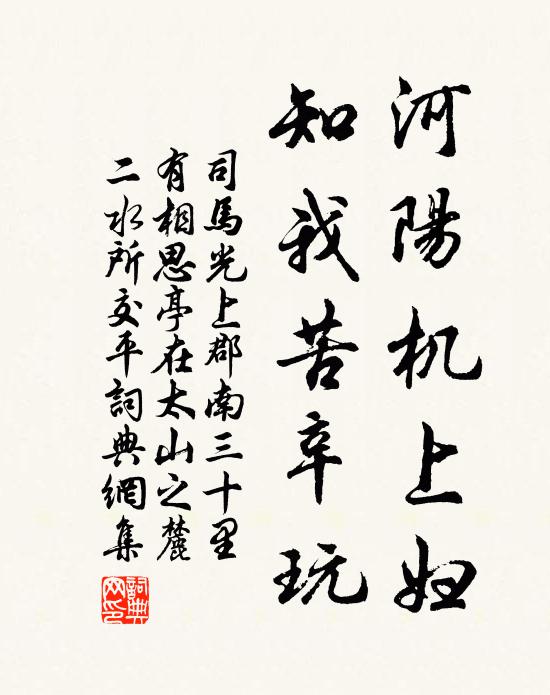 河陽机上婦
知我苦辛玩
司馬光上郡南三十里
有相思亭在太山之麓
二水所交平詞典網集
詞典网印